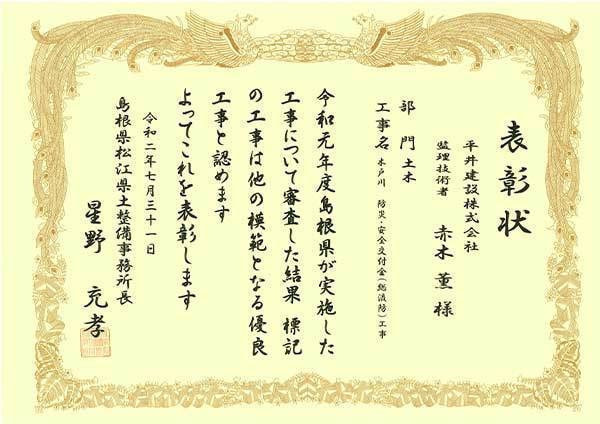 表彰状
平井建設株式会社
監理技術者 赤木 薫 様
部門 土木
工事名 水戸川 防災・安全交付金(総流防)工事
令和元年度島根県が実施した
工事について審査した結果 標記
の工事は他の模範となる優良
工事と認めます
よってこれを表彰します
令和二年七月三十一日
島根県松江県土整備事務所長
星野 充孝